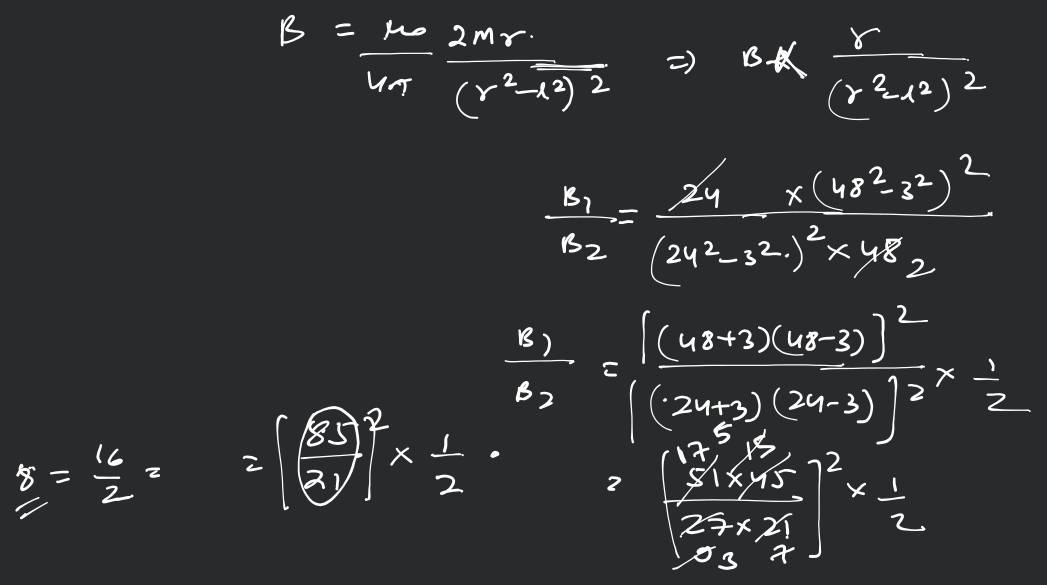 B = μ₀/4π 2Mr/(r²-l²)² ⇒ B ∝ r/(r²-l²)²
B₁/B₂ = 24 × (48²-3²)² / (24²-3².)² × 48 2
B₁/B₂ = [(48+3)(48-3)]² / [(24+3)(24-3)]² × 1/2
= [51×45 / 27×21]² × 1/2 17 5 15 9 3 7
= [85/21]² × 1/2 .
8 = 16/2 =